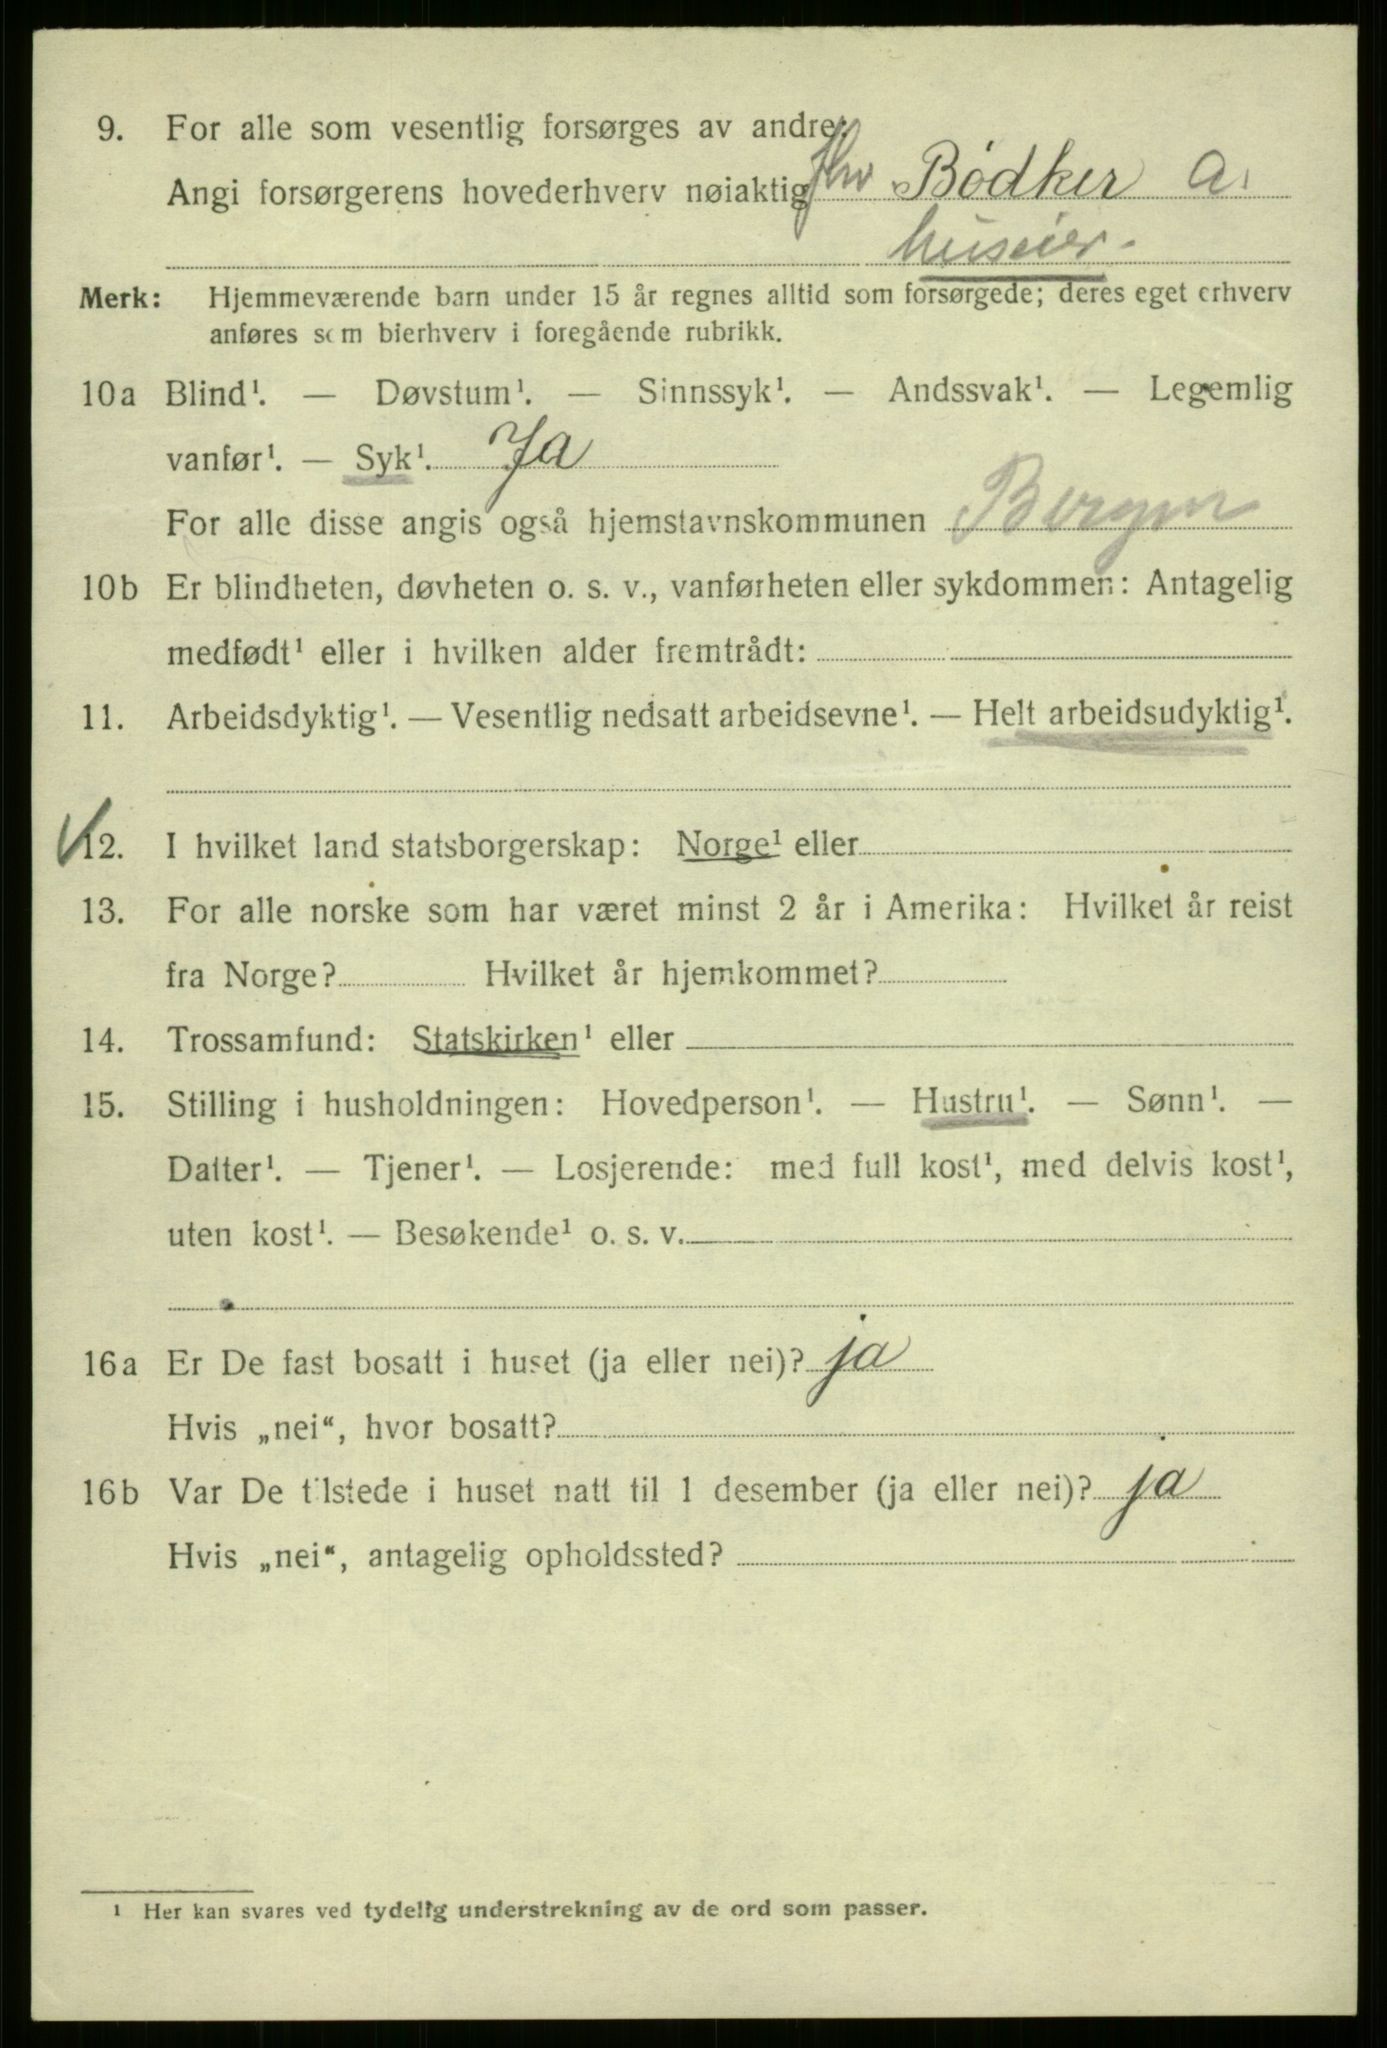 9. For alle som vesentlig forsørges av andre:
Angi forsørgerens hovederhverv nøiaktig Bödker A.
huseier.
Merk: Hjemmeværende barn under 15 år regnes alltid som forsørgede; deres eget erhverv
anføres som bierhverv i foregående rubrikk.
10a Blind¹. — Døvstum¹. — Sinnssyk¹. — Andssvak¹. — Legemlig
vanfør¹. — Syk¹. Ja
For alle disse angis også hjemstavnskommunen Bergen
10b Er blindheten, døvheten o. s. v., vanførheten eller sykdommen: Antagelig
medfødt¹ eller i hvilken alder fremtrådt:
11. Arbeidsdyktig¹. — Vesentlig nedsatt arbeidsevne¹. — Helt arbeidsudyktig¹.
12. I hvilket land statsborgerskap: Norge¹ eller
13. For alle norske som har været minst 2 år i Amerika: Hvilket år reist
fra Norge? Hvilket år hjemkommet?
14. Trossamfund: Statskirken¹ eller
15. Stilling i husholdningen: Hovedperson¹. — Hustru¹. — Sønn¹. —
Datter¹. — Tjener¹. — Losjerende: med full kost¹, med delvis kost¹,
uten kost¹. — Besøkende¹ o. s. v.
16a Er De fast bosatt i huset (ja eller nei)? ja
Hvis „nei“, hvor bosatt?
16b Var De tilstede i huset natt til 1 desember (ja eller nei)? ja
Hvis „nei“, antagelig opholdssted?
¹ Her kan svares ved tydelig understrekning av de ord som passer.